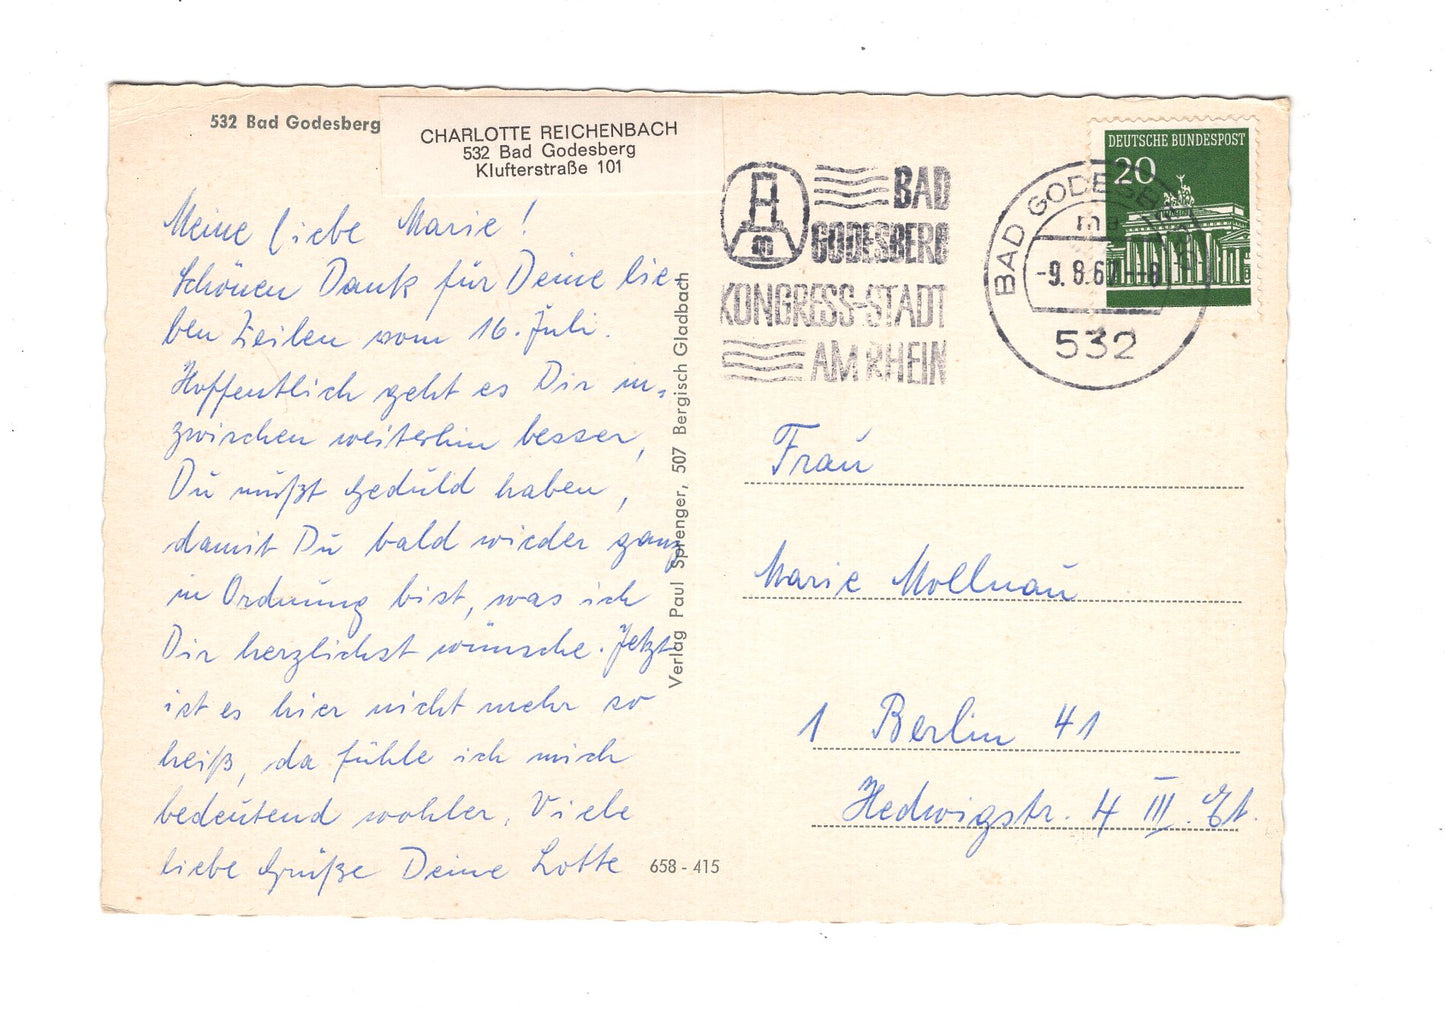 532 Bad Godesberg
CHARLOTTE REICHENBACH
532 Bad Godesberg
Klufterstraße 101
Meine liebe Marie!
Schönen Dank für Deine lie-
ben Zeilen vom 16. Juli.
Hoffentlich geht es Dir in-
zwischen weiterhin besser,
Du mußt Geduld haben,
damit Du bald wieder ganz
in Ordnung bist, was ich
Dir herzlichst wünsche. Jetzt
ist es hier nicht mehr so
heiß, da fühle ich mich
bedeutend wohler. Viele
liebe Grüße Deine Lotte
658 - 415
Verlag Paul Sprenger, 507 Bergisch Gladbach
BAD
GODESBERG
KONGRESS-STADT
AM RHEIN
BAD GODESBERG
-9.8.67--8
532
DEUTSCHE BUNDESPOST
20
Frau
Marie Mollnau
1 Berlin 41
Hedwigstr. 4 III. Et.